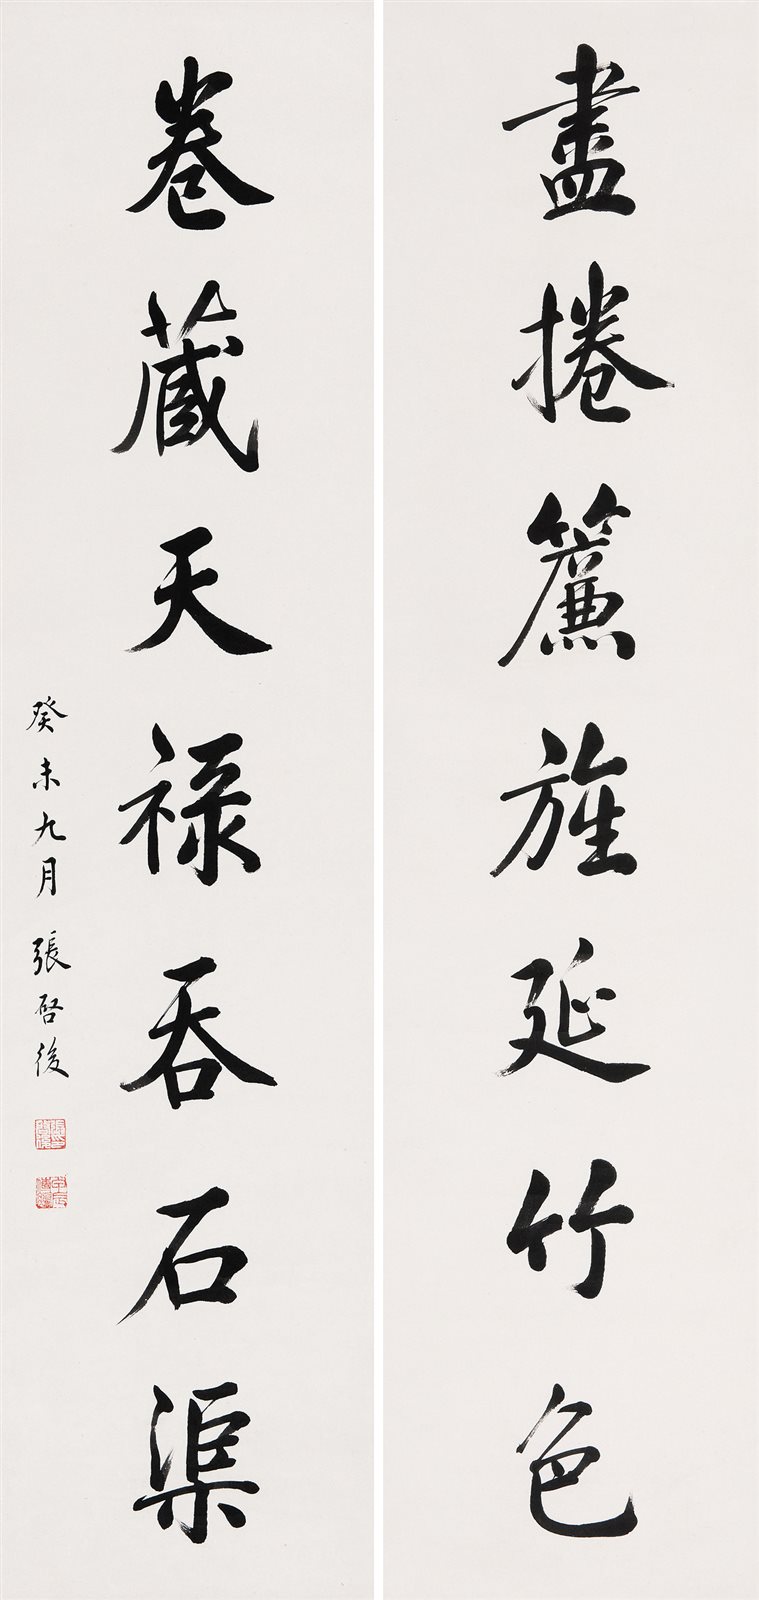 盡捲簾旌延竹色
卷藏天禄吞石渠
癸未九月張啓後